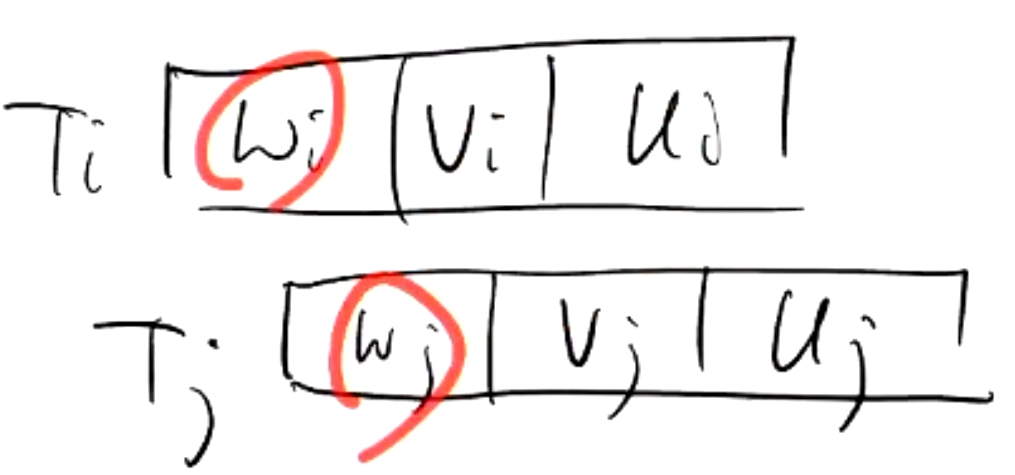 Ti wi vi ui
Tj wj vj uj